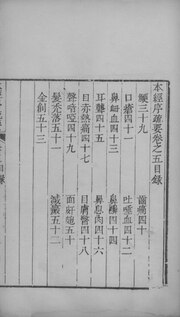 本經序疏要卷之五目錄
瘿三十九
齒痛四十
口瘡四十一
吐唾血四十二
鼻衄血四十三
鼻癰四十四
耳聾四十五
鼻息肉四十六
目赤熱痛四十七
目膚翳四十八
聲喑啞四十九
面奸皰五十
髮禿落五十一
滅瘢五十二
金創五十三